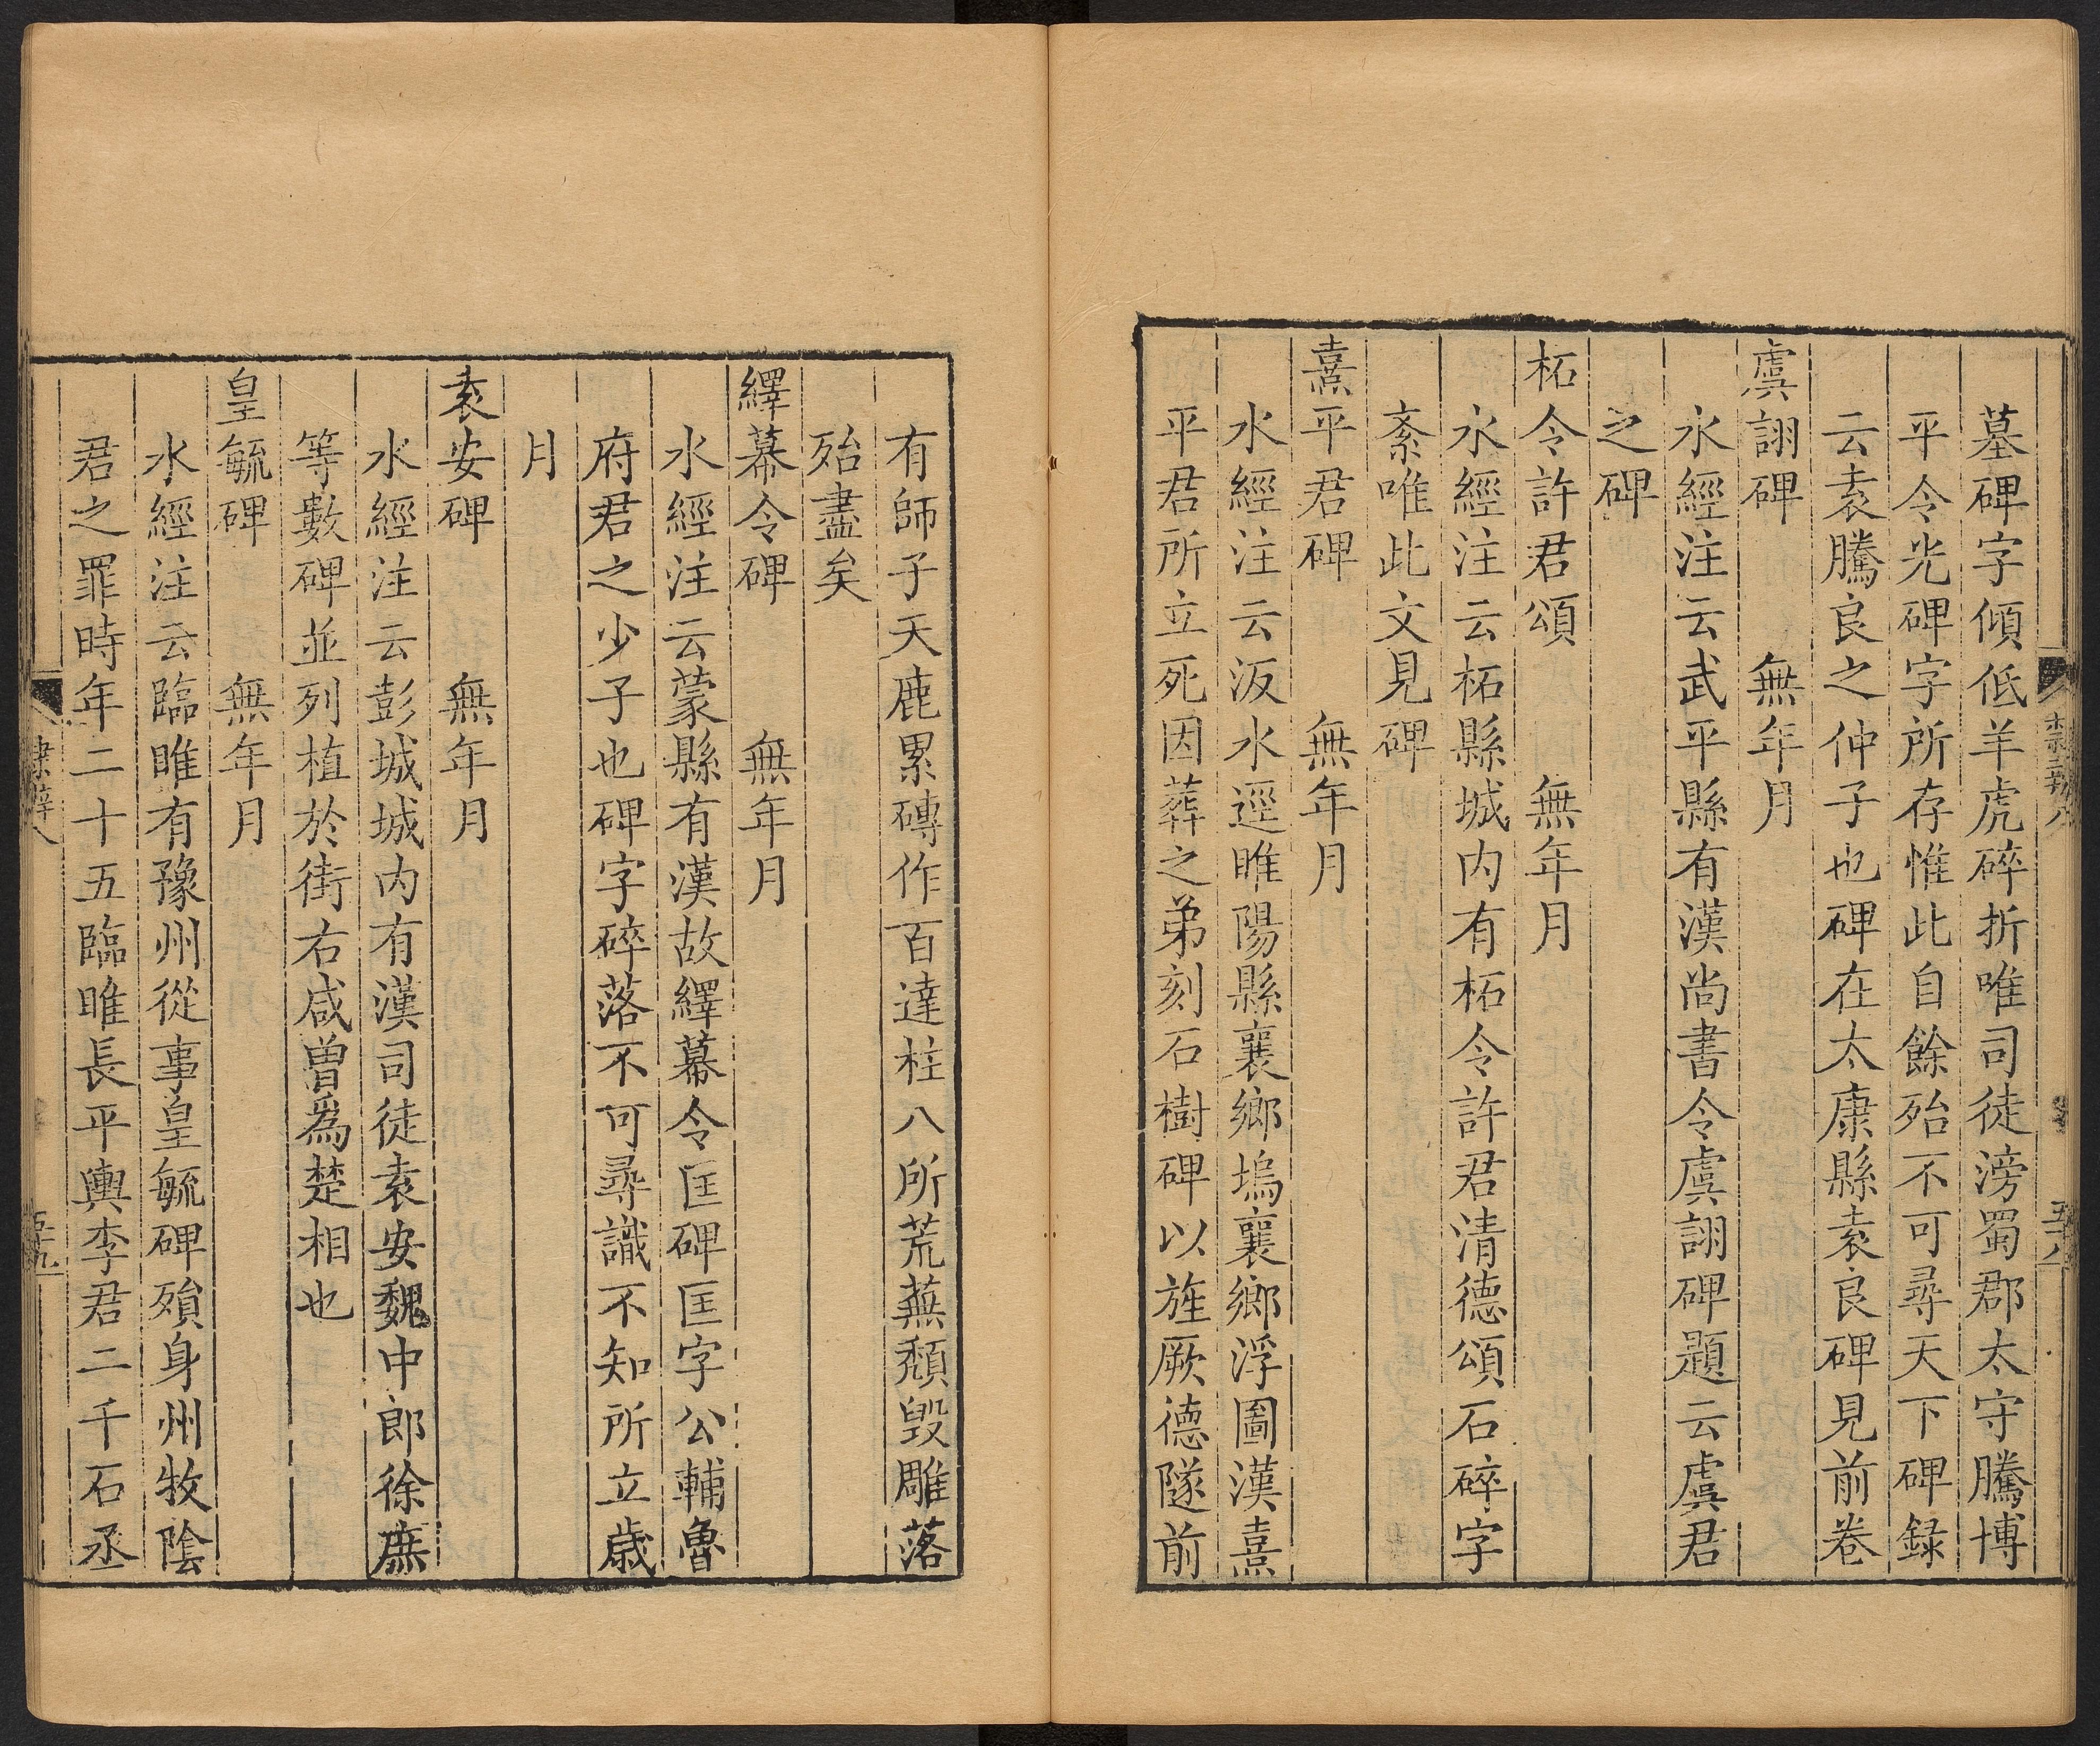 墓碑字傾低羊虎碎折唯司徒滂蜀郡太守騰博
平令光碑字所存惟此自餘殆不可尋天下碑錄
云袁騰良之仲子也碑在太康縣袁良碑見前卷
虞詡碑　無年月
水經注云武平縣有漢尚書令虞詡碑題云虞君
之碑
柘令許君頌　無年月
水經注云柘縣城内有柘令許君清德頌石碎字
紊唯此文見碑
熹平君碑　無年月
水經注云汳水逕睢陽縣襄鄉塢襄鄉浮圖漢熹
平君所立死因葬之弟刻石樹碑以旌厥德隧前
有師子天鹿累磚作百達柱八所荒蕪頹毁雕落
殆盡矣
繹幕令碑　無年月
水經注云蒙縣有漢故繹幕令匡碑匡字公輔魯
府君之少子也碑字碎落不可尋識不知所立歲
月
袁安碑　無年月
水經注云彭城城内有漢司徒袁安魏中郎徐庶
等數碑並列植於街右咸曽爲楚相也
皇毓碑　無年月
水經注云臨睢有豫州從事皇毓碑殞身州牧陰
君之罪時年二十五臨睢長平輿李君二千石丞
隸辨八
五十九